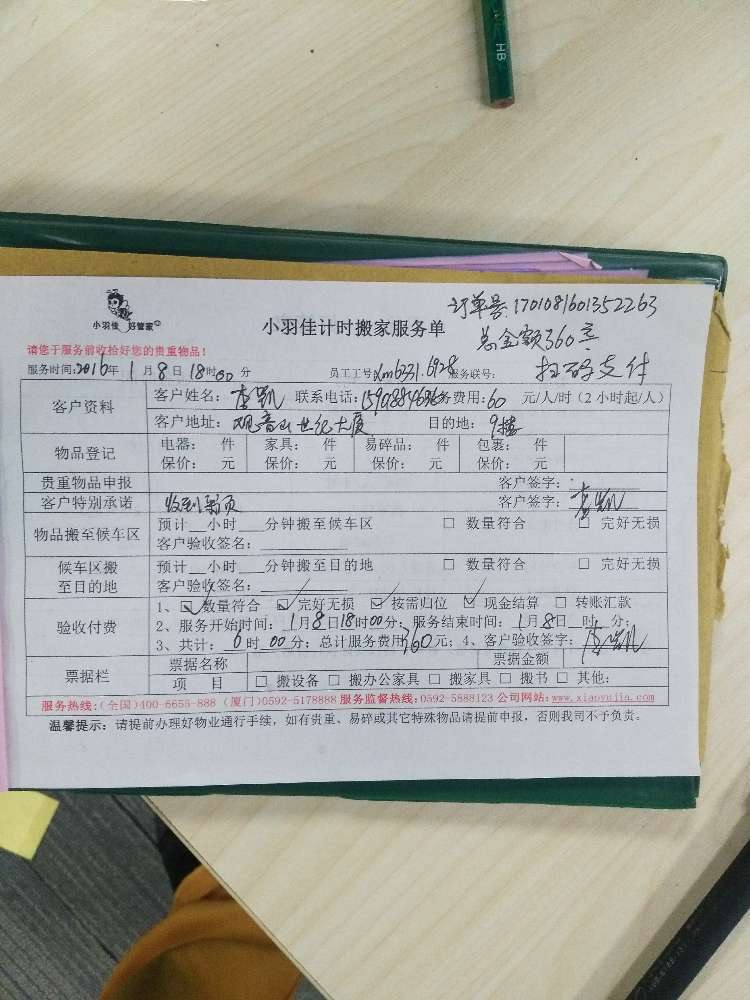 HB
小羽佳 好管家
小羽佳计时搬家服务单
订单号:1701081601352263
总金额360
扫码支付
请您于服务前收拾好您的贵重物品!
服务时间:2016年1月8日18时00分 员工工号: 服务联号:
客户资料 客户姓名:李凯 联系电话: 务费用:60 元/人/时(2小时起/人)
客户地址:观音山世纪大厦 目的地:9楼
物品登记 电器: 件 家具: 件 易碎品: 件 包裹: 件
保价: 元 保价: 元 保价: 元 保价: 元
贵重物品申报 客户签字:
客户特别承诺 收到 客户签字:李凯
物品搬至候车区 预计__小时___分钟搬至候车区 □ 数量符合 □ 完好无损
客户验收签名:
候车区搬至目的地 预计__小时___分钟搬至目的地 □ 数量符合 □ 完好无损
客户验收签名:
验收付费 1、☑数量符合 ☑完好无损 ☑按需归位 ☑现金结算 □ 转账汇款
2、服务开始时间:1月8日18时00分;服务结束时间:1月8日__时__分;
3、共计:6时00分;总计服务费用360元;4、客户验收签字:李凯
票据栏 票据名称 票据金额
项 目 □ 搬设备 □ 搬办公家具 □ 搬家具 □ 搬书 □ 其他:
服务热线:(全国)400-6655-888 (厦门)0592-5178888 服务监督热线:0592-5888123 公司网站:www.xiaoyujia.com
温馨提示:请提前办理好物业通行手续,如有贵重、易碎或其它特殊物品请提前申报,否则我司不予负责。